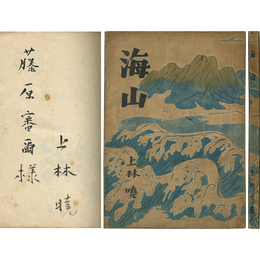 藤原審爾様
上林暁
海山
上林暁
海山